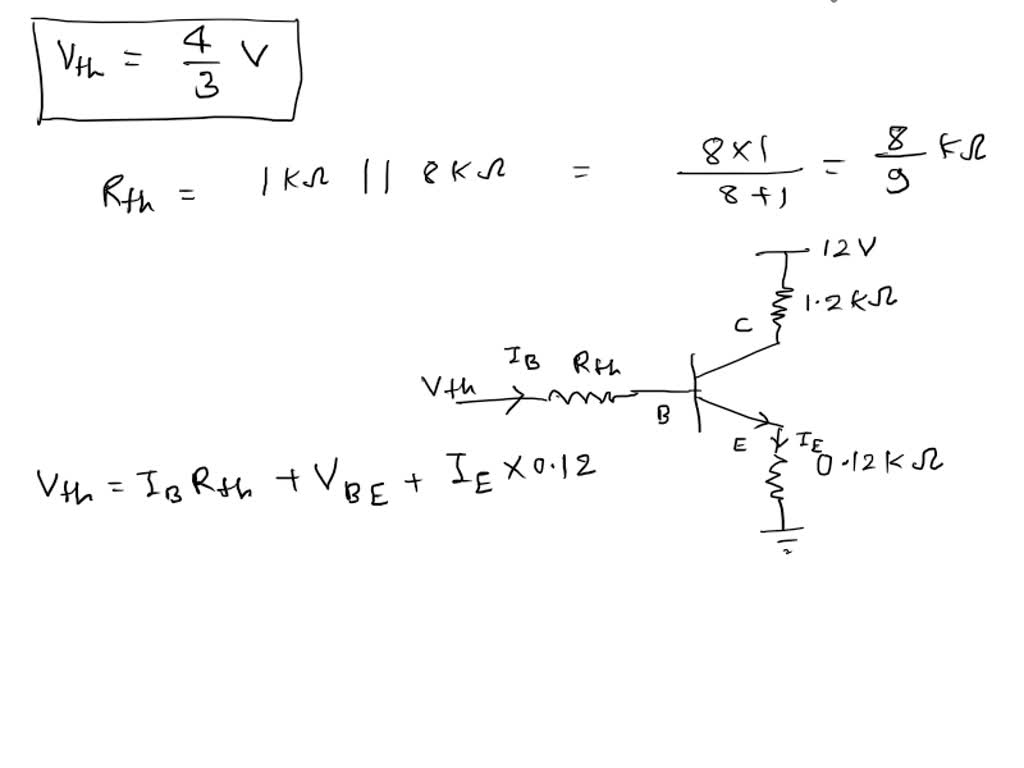 Vth = 4/3 V
Rth = 1KΩ || 8KΩ = 8×1/8+1 = 8/9 KΩ
12V
1.2KΩ
C
IB Rth
Vth
B
E IE
0.12KΩ
Vth = IB Rth + VBE + IE × 0.12